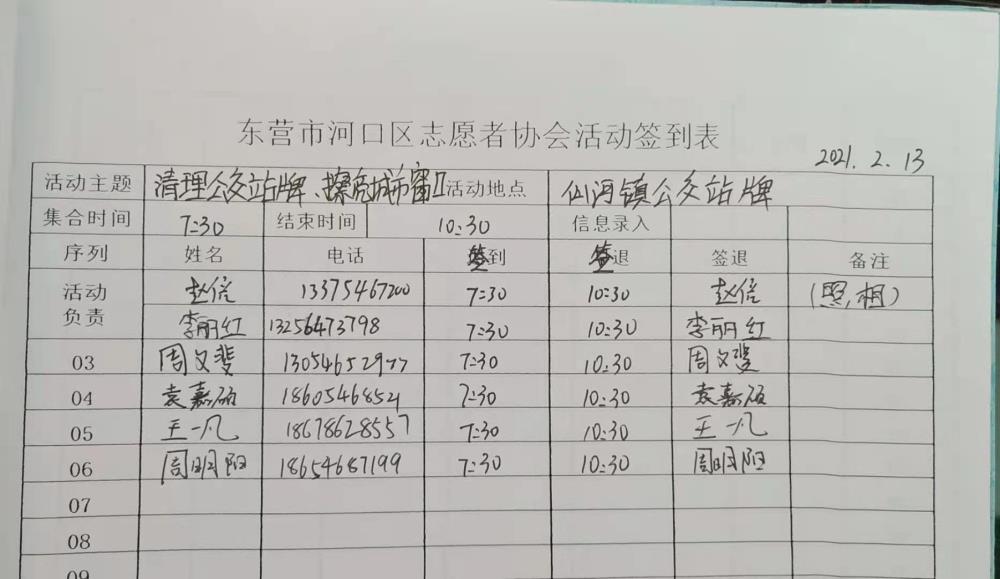 东营市河口区志愿者协会活动签到表
2021. 2. 13
活动主题 清理公交站牌、擦亮城市窗口 活动地点 仙河镇公交站牌
集合时间 7:30 结束时间 10:30 信息录入
序列 姓名 电话 签到 签退 签退 备注
活动负责 赵信 13375467200 7:30 10:30 赵信 (照相)
李丽红 13256473798 7:30 10:30 李丽红
03 周文斐 13054652977 7:30 10:30 周文斐
04 袁嘉硕 18605468521 7:30 10:30 袁嘉硕
05 王一凡 18678628557 7:30 10:30 王一凡
06 周明阳 18654687199 7:30 10:30 周明阳
07
08
09